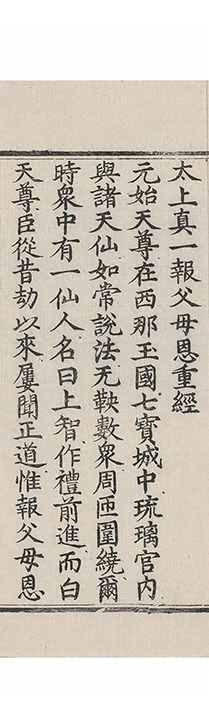 太上真一報父母恩重經
元始天尊在西那王國七寶城中琉璃宮內
與諸天仙如常說法无鞅數衆周匝圍繞爾
時衆中有一仙人名曰上智作禮前進而白
天尊臣從昔劫以來屢聞正道惟報父母恩